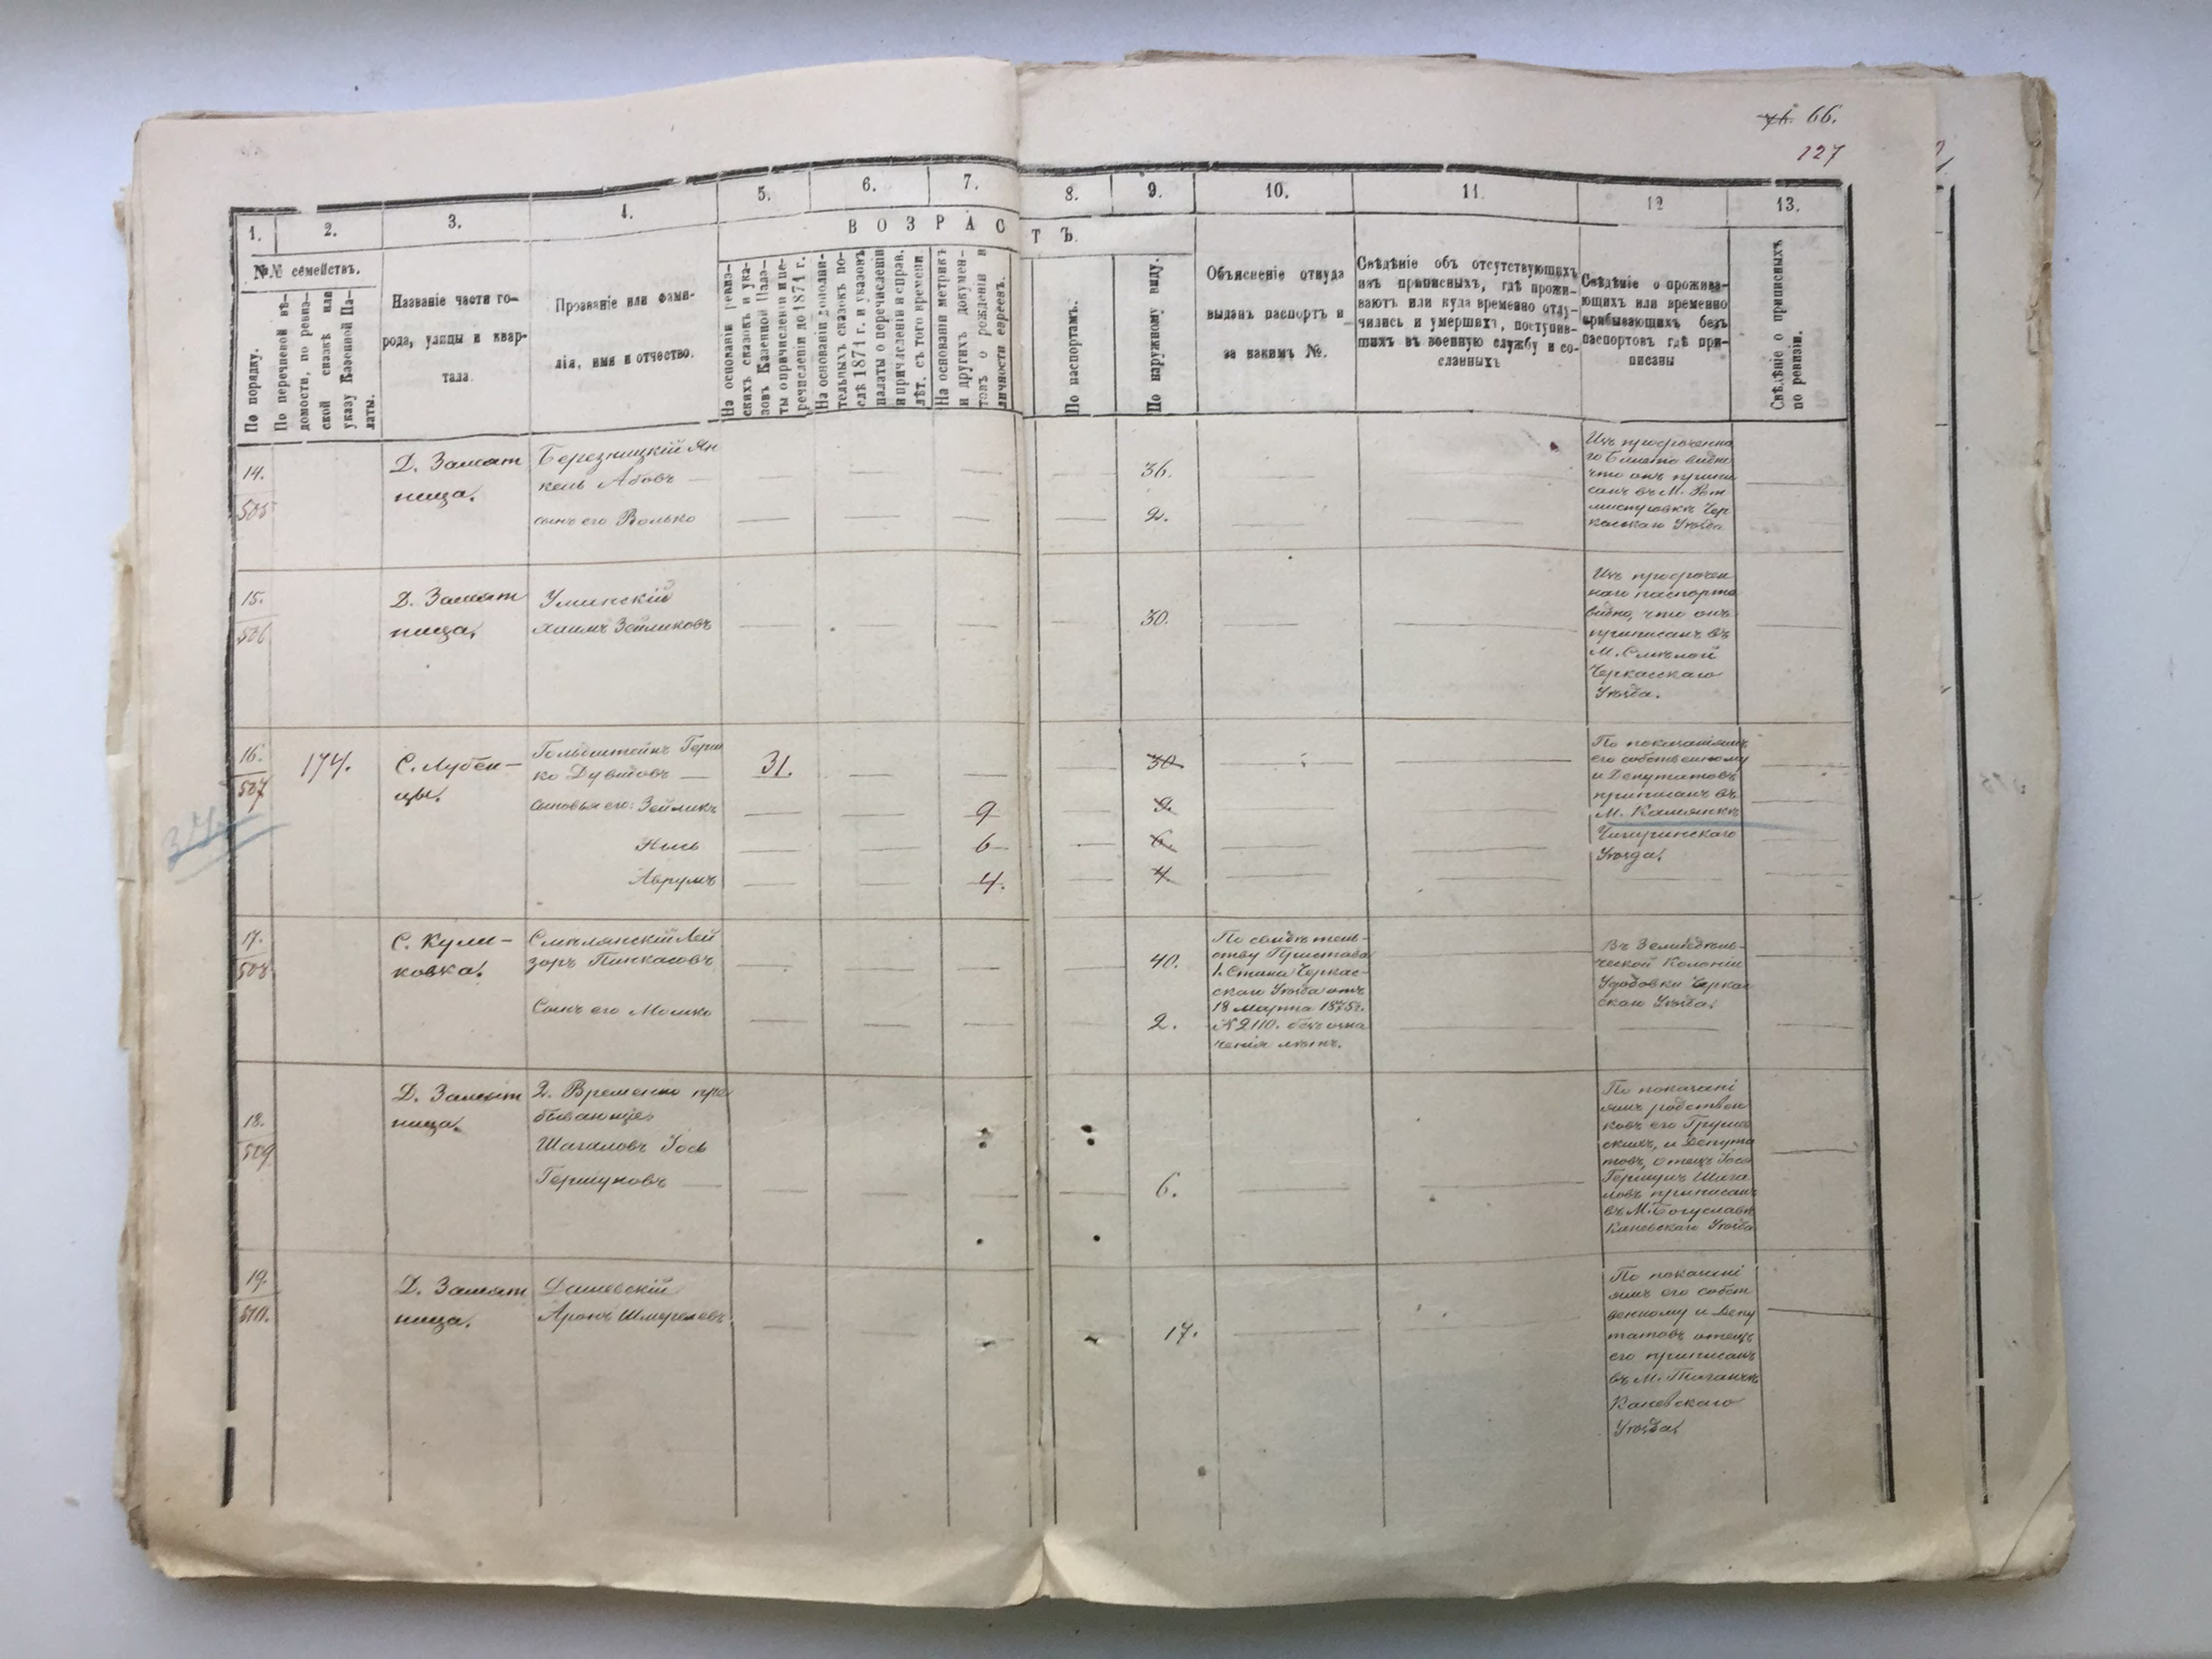 66.
127
1.
2.
3.
4.
5.
6.
7.
8.
9.
10.
11.
12
13.
В О З Р А С Т Ъ.
№№ семействъ.
По порядку.
По перечневой вѣ-
домости, по ревиз-
ской сказкѣ или
указу Казенной Па-
латы.
Названіе части го-
рода, улицы и квар-
тала.
Прозваніе или фами-
лія, имя и отчество.
На основаніи ревиз-
скихъ сказокъ и ука-
зовъ Казенной Пала-
ты о причисленіи и пе-
речисленіи до 1871 г.
На основаніи дополни-
тельныхъ сказокъ по-
слѣ 1871 г. и указовъ
палаты о перечисленіи
и причисленіи и справ.
лѣт. съ того времени.
На основаніи метрикъ
и другихъ докумен-
товъ о рожденіи и
личности евреевъ.
По паспортамъ.
По наружному виду.
Объясненіе откуда
выданъ паспортъ и
за какимъ №.
Свѣдѣніе объ отсутствующихъ
изъ приписныхъ, гдѣ прожи-
ваютъ или куда временно отлу-
чились и умершихъ, поступив-
шихъ въ военную службу и со-
сланныхъ
Свѣдѣніе о прожива-
ющихъ или временно
прибывающихъ безъ
паспортовъ гдѣ при-
писаны
Свѣдѣніе о приписныхъ
по ревизіи.
14.
505
Д. Замят
ница.
Березницкій Ян
кель Абовъ
36.
сынъ его Волько
2.
Изъ просроченна
го билета видно
что онъ припи
санъ въ М. Рот
мистровкѣ Чер
касскаго Уѣзда
15.
506
Д. Замят
ница.
Уманскій
Хаимъ Зейликовъ
30.
Изъ просрочен
наго паспорта
видно, что онъ
приписанъ въ
М. Смѣлой
Черкасскаго
Уѣзда.
16.
507
174.
С. Лубен-
цы.
Гольдштейнъ Герш
ко Дувидовъ
31.
30
сыновья его: Зейликъ
9
9
6
6
Аврумъ
4.
4
По показаніямъ
его собственному
и Депутатовъ
приписанъ въ
М. Каменкѣ
Чигиринскаго
Уѣзда.
17.
508
С. Кули-
ковка.
Смѣлянскій Лей
зоръ Пинкасовъ
40.
Сынъ его Мошко
2.
По свидѣтель-
ству Пристава
1. Стана Черкас-
скаго Уѣзда отъ
18 Марта 1875 г.
№ 2110. безъ озна
ченія лѣтъ.
Въ Земледѣль-
ческой Колоніи
Черкас
скаго Уѣзда.
18.
509
Д. Замят
ница.
2. Временно пре
бывающіе
Шагаловъ Іось
Гершуновъ
6.
По показані
ямъ родствен
ковъ его
и Депута
товъ, отецъ Іося
Гершунъ Шага
ловъ приписанъ
въ М. Богуславѣ
Каневскаго Уѣзда
19.
510.
Д. Замят
ница.
Дашевскій
Аронъ Шмерелевъ
17.
По показані
ямъ его собст
венному и Депу
татовъ отецъ
его приписанъ
въ М. Таганчѣ
Каневскаго
Уѣзда.